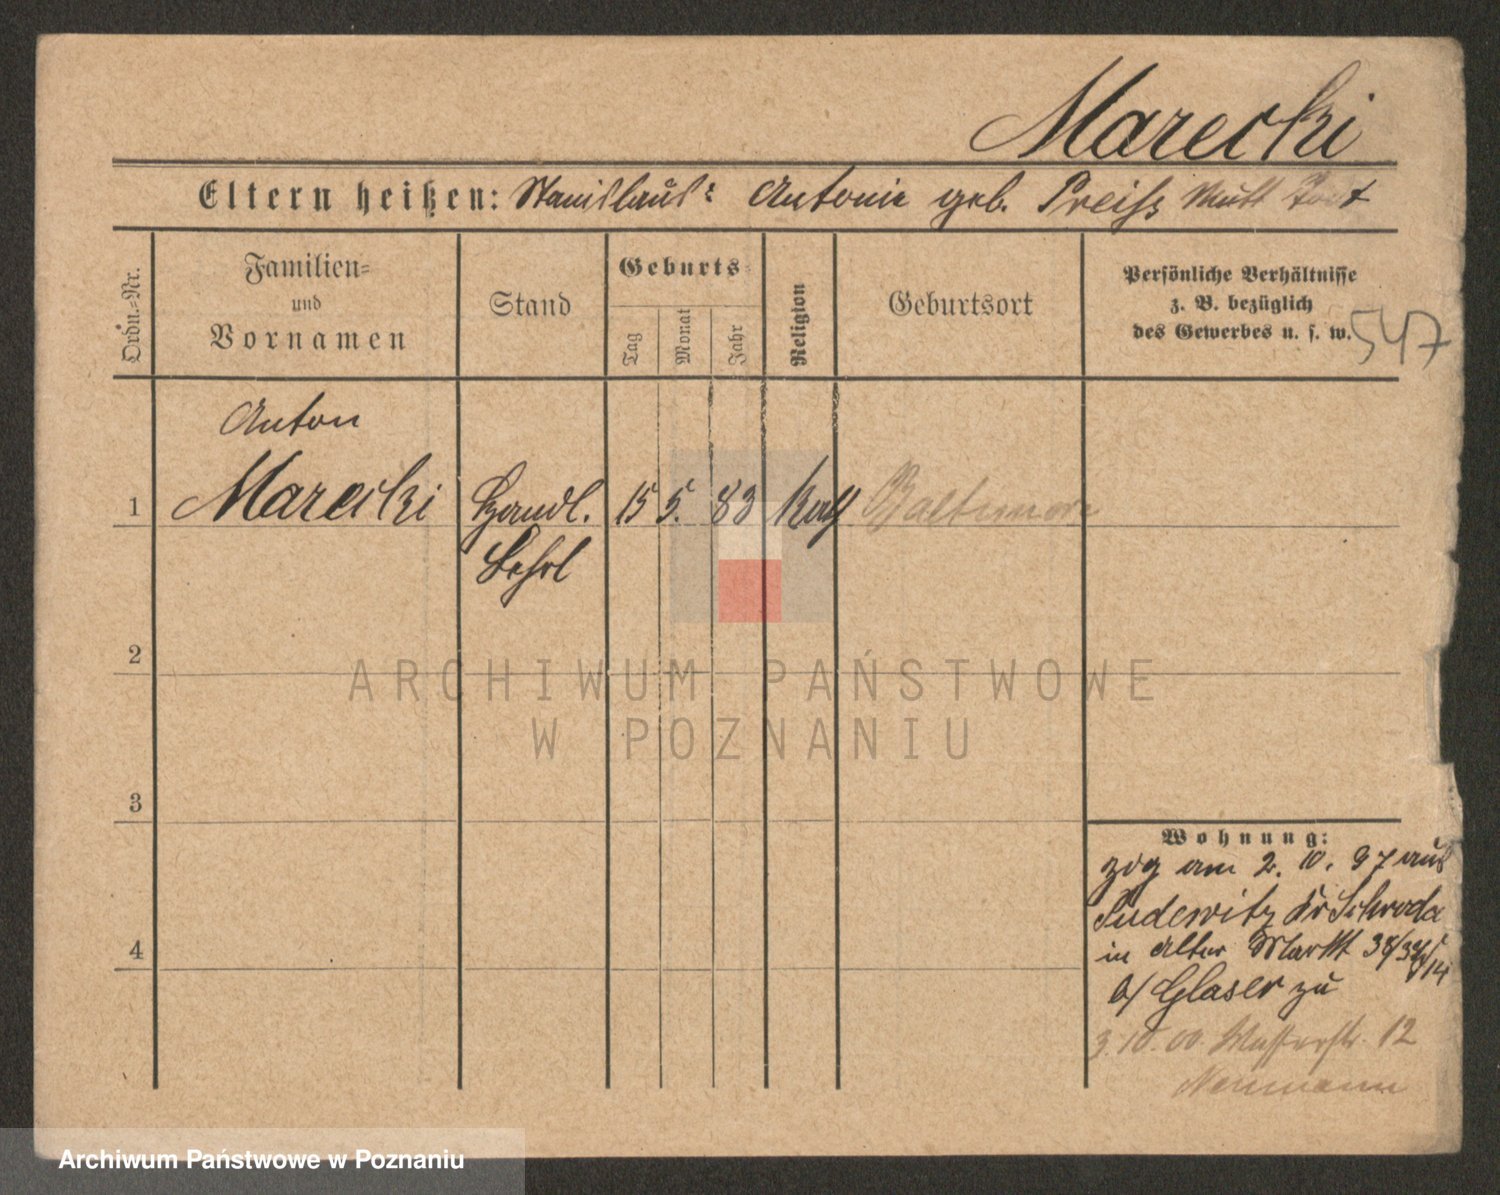 Marecki
Eltern heißen: Stanislaus: Antonie geb. Preiss Mutt tot
Ordn.-Nr.
Familien-
und
Vornamen
Stand
Geburts-
Tag
Monat
Jahr
Religion
Geburtsort
Persönliche Verhältnisse
z. B. bezüglich
des Gewerbes u. s. w.
547
Anton
1 Marecki Handl. 15 5. 83 Kath Baltimore
Lehrl
2
3
4
Wohnung:
zog am 2. 10. 97 aus
Pudewitz Kr Schroda
in Alter Markt
b/ Glaser zu
3.10.00. Wasserstr. 12
ARCHIWUM PAŃSTWOWE
W POZNANIU
Archiwum Państwowe w Poznaniu